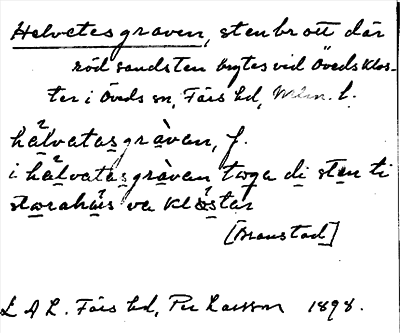 Helvetesgraven, stenbrott där
röd sandsten brytes vid Öveds klos-
ter i Öveds sn, Färs hd, Mlm. l.
hälvatasgràven, f.
i hälvatasgràven toga di sten ti
starahüs va klöstar
[Branstad]
L A L. Färs hd, Per Larsson 1898.